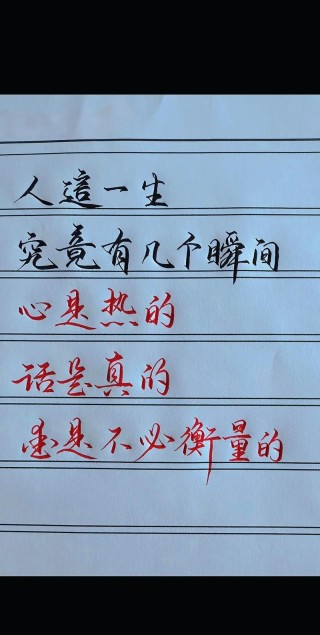 人這一生
究竟有几个瞬间
心是热的
话是真的
爱是不必衡量的